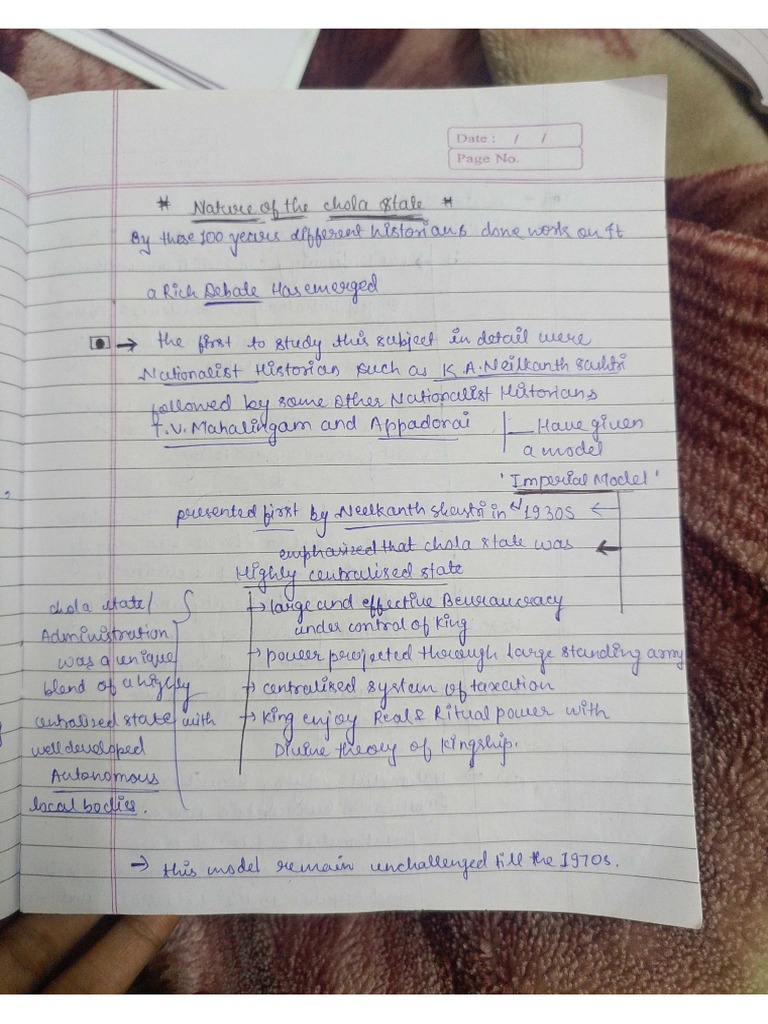 Date : / /
Page No.
* Nature of the chola state *
By these 100 years different historians done work on it
a Rich Debate Has emerged
→ the first to study this subject in detail were
Nationalist Historian such as K.A. Neilkanth sashtri
followed by some other Nationalist Historians
T.V. Mahalingam and Appadorai
Have given
a model
'Imperial Model'
presented first by Neelkanth shastri in 1930s ←
emphasized that chola state was ←
Highly centralised state
→ large and effective Beuraucracy
under control of King
→ power projected through large standing army
→ centralised system of taxation
→ King enjoy Real & Ritual power with
Divine theory of Kingship.
chola state/
Administration
was a unique
blend of a highly
centralised state with
well developed
Autonomous
local bodies.
→ this model remain unchallenged till the 1970s.